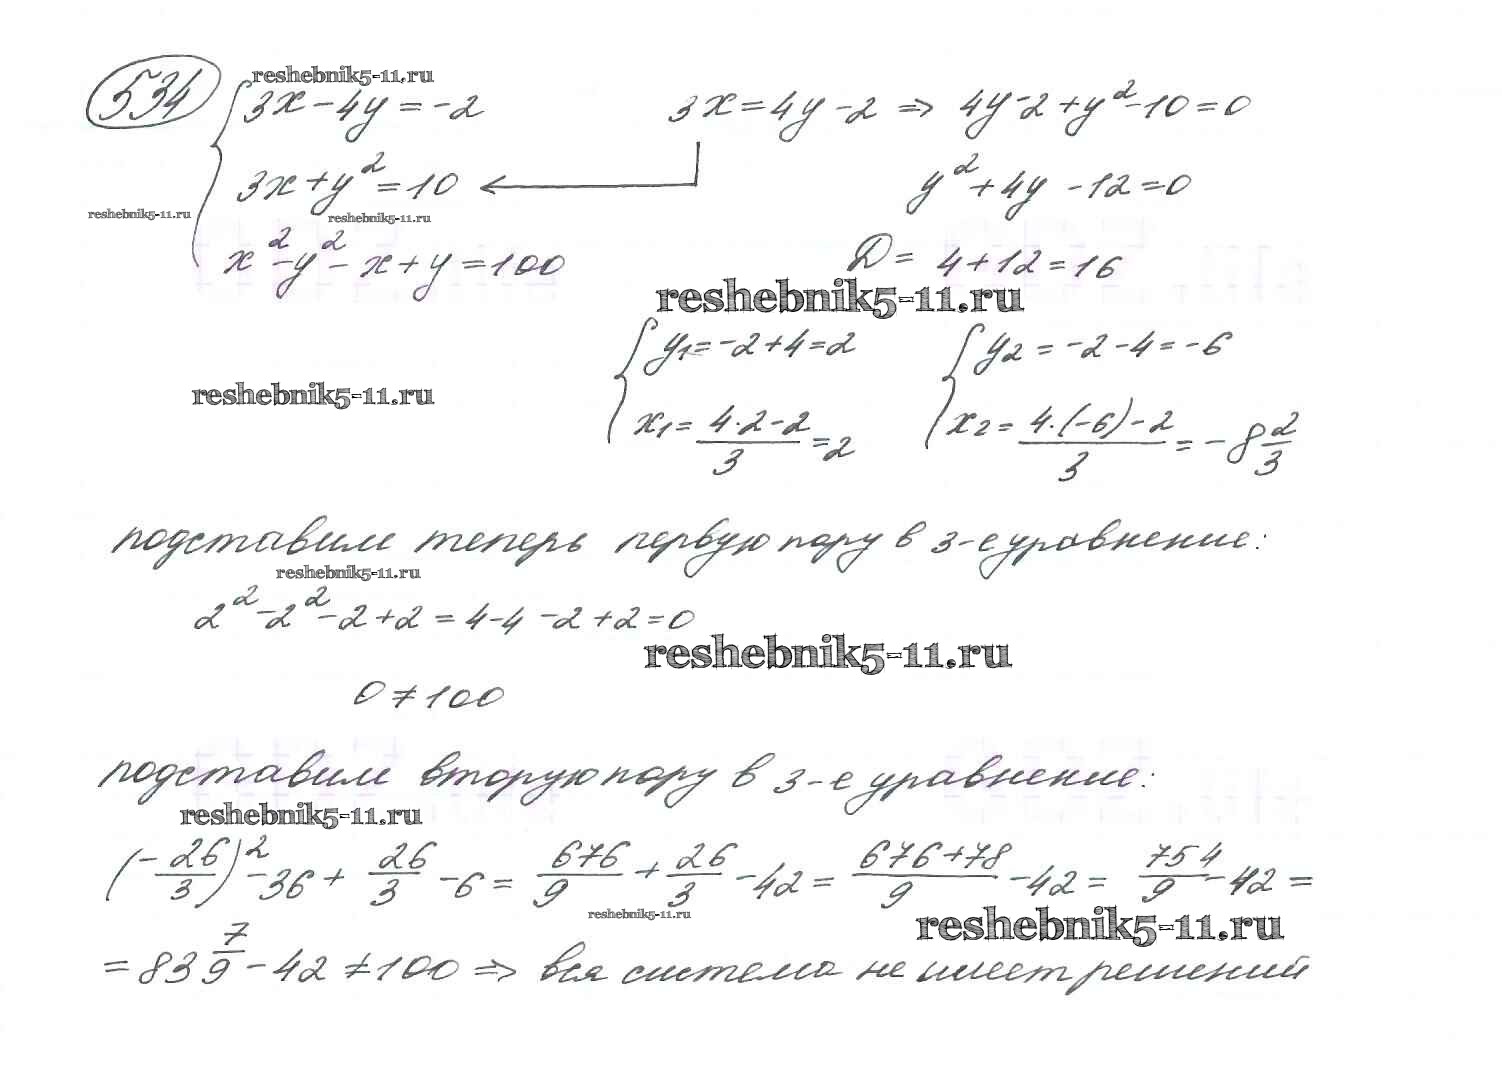 534 reshebnik5-11.ru
3x - 4y = -2 3x = 4y - 2 => 4y - 2 + y² - 10 = 0
3x + y² = 10 y² + 4y - 12 = 0
reshebnik5-11.ru reshebnik5-11.ru
x² - y² - x + y = 100 D = 4 + 12 = 16
reshebnik5-11.ru
y1 = -2 + 4 = 2 y2 = -2 - 4 = -6
reshebnik5-11.ru
x1 = (4·2 - 2)/3 = 2 x2 = (4·(-6) - 2)/3 = -8 2/3
подставим теперь первую пару в 3-е уравнение:
reshebnik5-11.ru
2² - 2² - 2 + 2 = 4 - 4 - 2 + 2 = 0
reshebnik5-11.ru
0 ≠ 100
подставим вторую пару в 3-е уравнение:
reshebnik5-11.ru
(-26/3)² - 36 + 26/3 - 6 = 676/9 + 26/3 - 42 = (676 + 78)/9 - 42 = 754/9 - 42 =
reshebnik5-11.ru
reshebnik5-11.ru
= 83 7/9 - 42 ≠ 100 => вся система не имеет решений